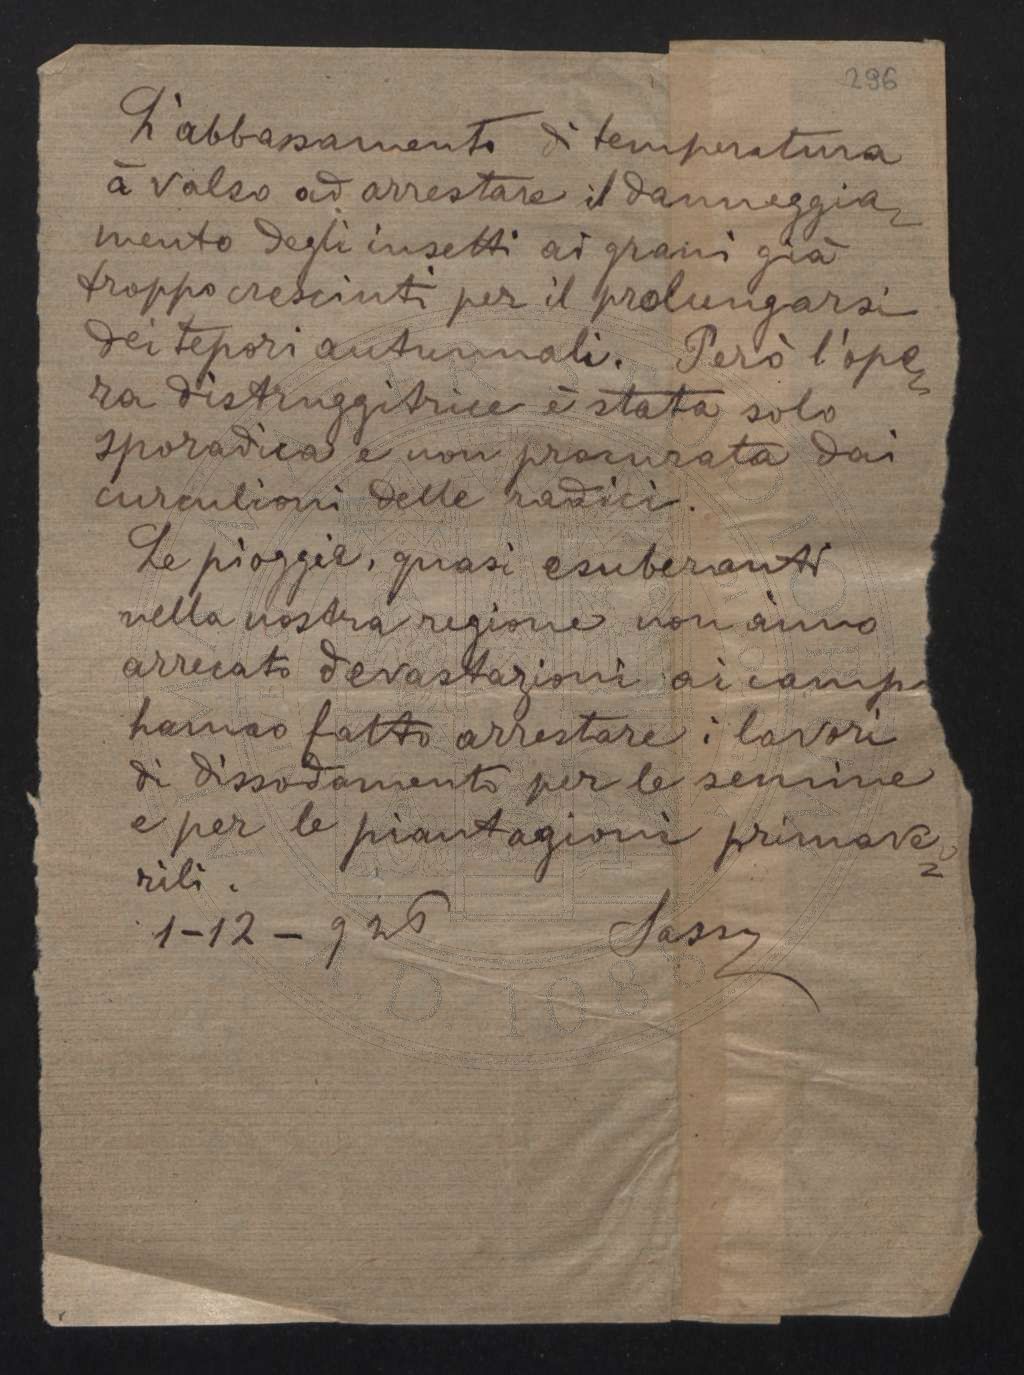 296
L'abbassamento di temperatura
à valso ad arrestare il danneggia=
mento degli insetti ai grani già
troppo cresciuti per il prolungarsi
dei tepori autunnali. Però l'ope=
ra distruggitrice è stata solo
sporadica e non procurata dai
curculioni delle radici.
Le pioggie, quasi esuberanti
nella nostra regione non ànno
arrecato devastazioni ai campi
hanno fatto arrestare i lavori
di dissodamento per le semine
e per le piantagioni primave=
rili.
1-12-926 Sassu
A.D. 1088